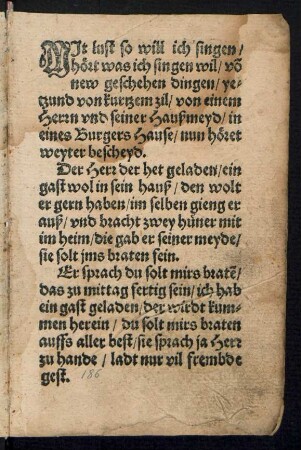 MIt lust so will ich singen/
hört was ich singen wil/ võ
new geschehen dingen/ ye-
tzund von kurtzem zil/ von einem
Herrn vnd seiner Haußmeyd/ in
eines Burgers Hause/ nun höret
weyter bescheyd.
Der Herr der het geladen/ ein
gast wol in sein hauß/ den wolt
er gern haben/ im selben gieng er
auß/ vnd bracht zwey hüner mit
im heim/ die gab er seiner meyde/
sie solt jms braten sein.
Er sprach du solt mirs bratẽ/
das zu mittag fertig sein/ ich hab
ein gast geladen/ der wirdt kum-
men herein/ du solt mirs braten
auffs aller best/ sie sprach ja Herr
zu hande/ ladt nur vil frembde
gest.
186